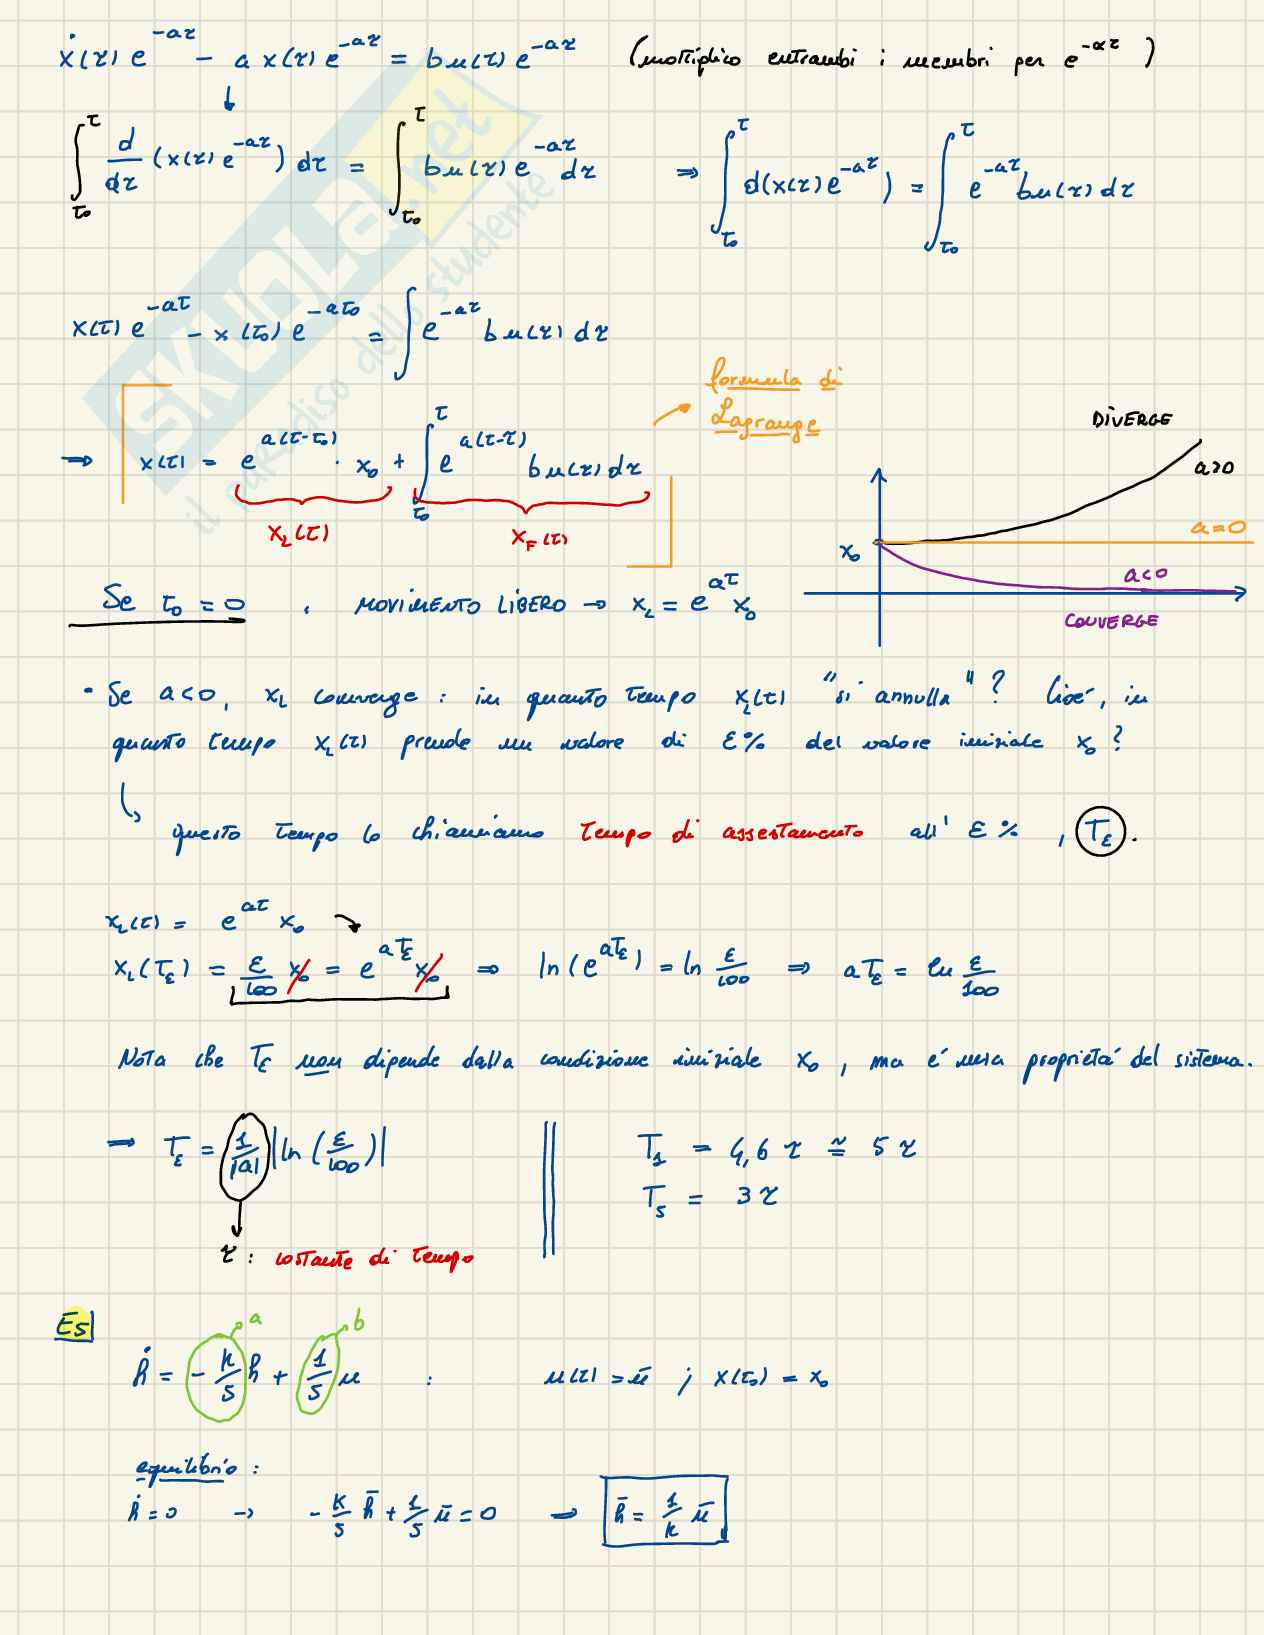 ẋ(τ) e^{-aτ} - a x(τ) e^{-aτ} = b u(τ) e^{-aτ} (moltiplico entrambi i membri per e^{-aτ})
∫_{t₀}^{t} d/dτ (x(τ) e^{-aτ}) dτ = ∫_{t₀}^{t} b u(τ) e^{-aτ} dτ ⇒ ∫_{t₀}^{t} d(x(τ) e^{-aτ}) = ∫_{t₀}^{t} e^{-aτ} b u(τ) dτ
x(t) e^{-at} - x(t₀) e^{-at₀} = ∫ e^{-aτ} b u(τ) dτ
formula di
Lagrange
⇒ x(t) = e^{a(t-t₀)} · x₀ + ∫_{t₀}^{t} e^{a(t-τ)} b u(τ) dτ
x_L(t) x_F(t)
DIVERGE
a>0
a=0
x₀
a<0
CONVERGE
Se t₀ = 0 , MOVIMENTO LIBERO → x_L = e^{at} x₀
• Se a<0, x_L converge : in quanto tempo x_L(t) "si annulla"? Cioé, in
quanto tempo x_L(t) prende un valore di ε% del valore iniziale x₀?
↳ questo tempo lo chiamiamo tempo di assestamento all' ε% , T_ε.
x_L(t) = e^{at} x₀
x_L(T_ε) = ε/100 x₀ = e^{aT_ε} x₀ ⇒ ln(e^{aT_ε}) = ln ε/100 ⇒ aT_ε = ln ε/100
Nota che T_ε non dipende dalla condizione iniziale x₀, ma é una proprietá del sistema.
⇒ T_ε = 1/|a| |ln(ε/100)|
T₁ = 4,6 τ ≅ 5 τ
T₅ = 3τ
τ : costante di tempo
Es
a b
ḣ = -k/S h + 1/S u : u(t) = ū ; x(t₀) = x₀
equilibrio :
ḣ=0 → -k/S h̄ + 1/S ū = 0 ⇒ h̄ = 1/k ū
SKUOLA.net
il paradiso dello studente